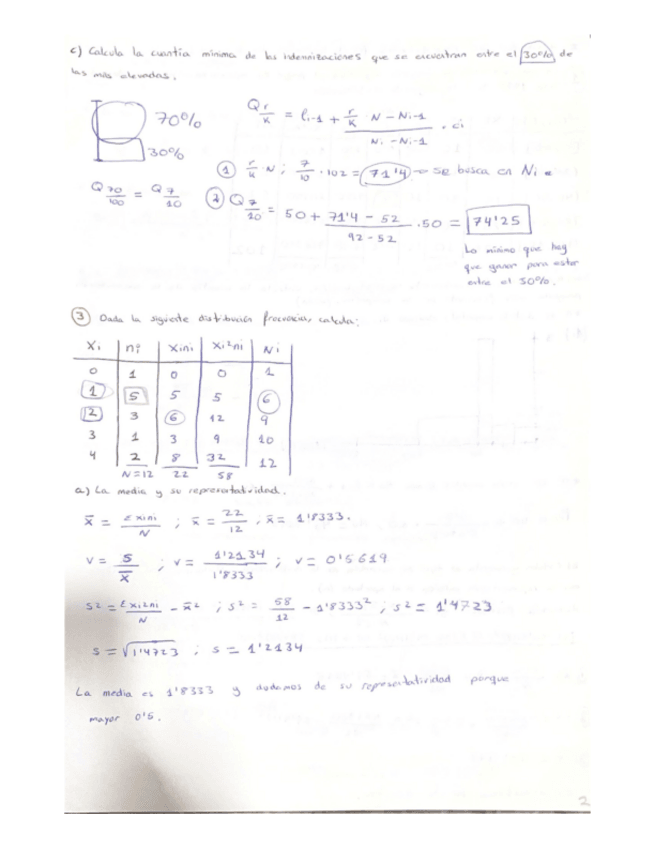 c) Calcula la cuantía mínima de las indemnizaciones que se encuentran entre el 30% de
las más elevadas.
70%
30%
Q r/k = li-1 + (r/k · N - Ni-1) / (Ni - Ni-1) · ci
① r/k · N ; 7/10 · 102 = 71'4 → se busca en Ni
Q 70/100 = Q 7/10
② Q 7/10 = 50 + (71'4 - 52) / (92 - 52) · 50 = 74'25
Lo mínimo que hay
que ganar para estar
entre el 30%.
③ Dada la siguiente distribución frecuencias calcula:
Xi ni xini xi²ni Ni
0 1 0 0 1
1 5 5 5 6
2 3 6 12 9
3 1 3 9 10
4 2 8 32 12
N=12 22 58
a) La media y su representatividad.
x̄ = Σxini/N ; x̄ = 22/12 ; x̄ = 1'8333.
V = S/x̄ ; v = 1'2134/1'8333 ; v = 0'5619
S² = Σxi²ni/N - x̄² ; s² = 58/12 - 1'8333² ; s² = 1'4723
s = √1'4723 ; s = 1'2134
La media es 1'8333 y dudamos de su representatividad porque
mayor 0'5.
2